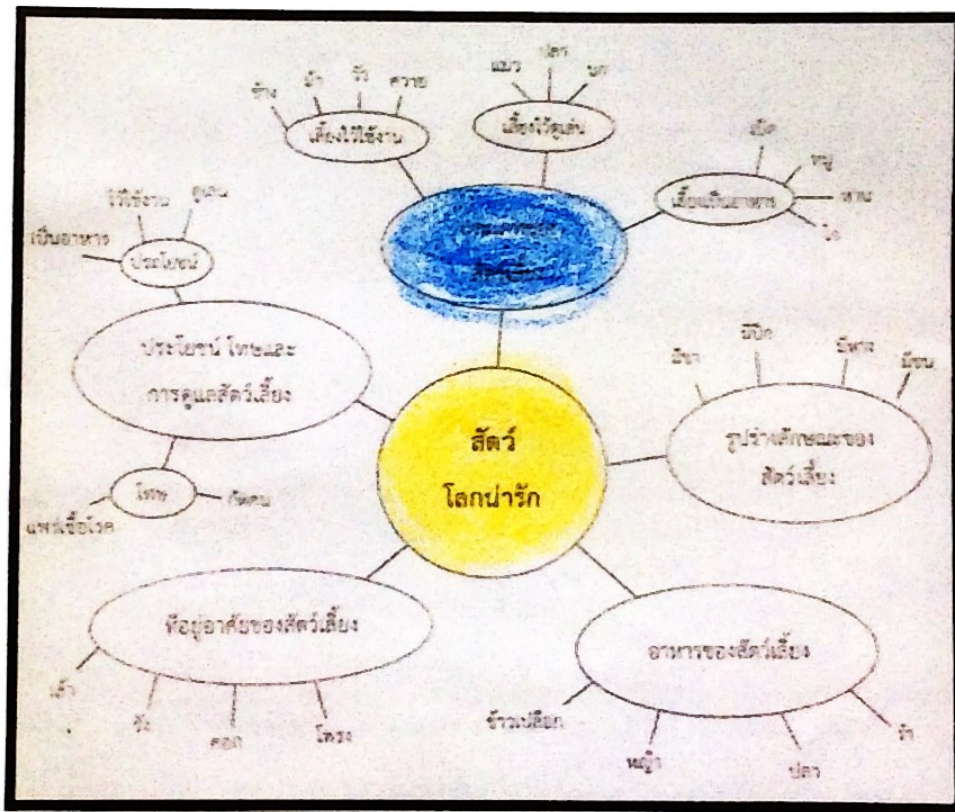 ช้าง
ม้า
วัว
ควาย
เลี้ยงไว้ใช้งาน
แมว
ปลา
นก
เลี้ยงไว้ดูเล่น
เป็ด
หมู
ห่าน
ไก่
เลี้ยงเป็นอาหาร
สัตว์เลี้ยง
ไว้ใช้งาน
ดูเล่น
เป็นอาหาร
ประโยชน์
ประโยชน์ โทษและ
การดูแลสัตว์เลี้ยง
โทษ
กัดคน
แพร่เชื้อโรค
สัตว์
โลกน่ารัก
มีขา
มีปีก
มีหาง
มีขน
รูปร่างลักษณะของ
สัตว์เลี้ยง
ที่อยู่อาศัยของสัตว์เลี้ยง
เล้า
รัง
คอก
โพรง
อาหารของสัตว์เลี้ยง
ข้าวเปลือก
หญ้า
ปลา
รำ